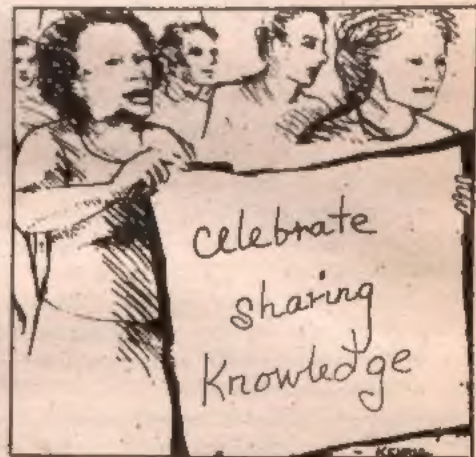 celebrate
sharing
Knowledge